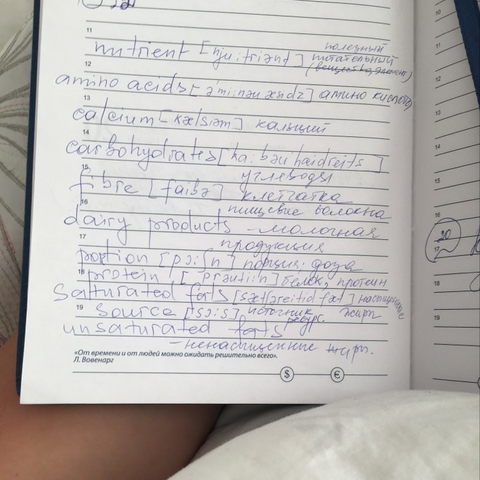 11
полезный
nutrient [nju:triənt] питательный
12
(вещество, элемент)
amino acids [əmi:nəu æsidz] амино кислота
13
calcium [kælsiəm] кальций
14
carbohydrates [ka:bəu haidreits]
15
углеводы
fibre [faibə] клетчатка
16
пищевые волокна
dairy products - молочная
17
продукция
portion [pɔ:ʃn] порция; доза
18
protein [prəuti:n] белок, протеин
saturated fats [sætʃəreitid fæt] насыщенные
19
source [sɔ:s] источник ресурс. жиры
unsaturated fats
- ненасыщенные жиры.
«От времени и от людей можно ожидать решительно всего».
Л. Вовенарг
$ €
10
11
12
13
14
15
16
20
17
18
19